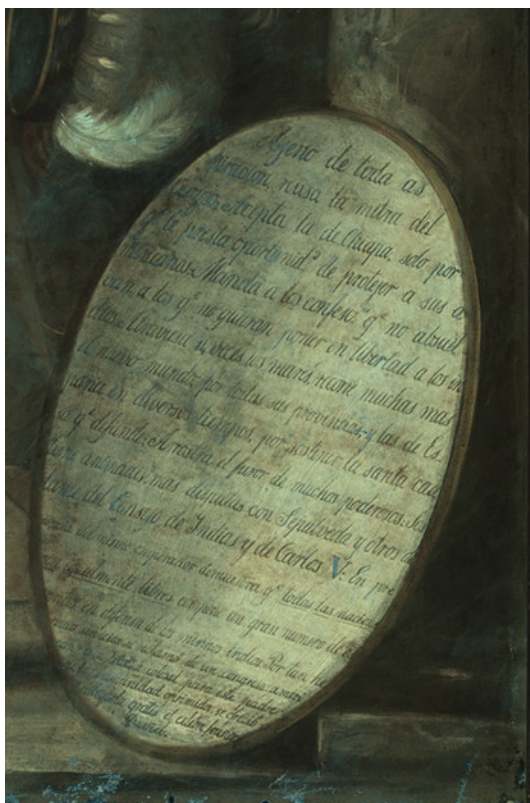 Ageno de toda as
piracion, rusa la mitra del
Cuzco. Acepta la de Chiapa, solo por
q.e le presta oportunid.d de protejer a sus a
Manda a los confeso.s q.e no absuel
van, a los q.e no quieran poner en libertad a los in
dios. Atraviesa 11, veces los mares, recorre muchas mas
el nuevo mundo, por todas sus provincias, y las de Es
paña en diversos tiempos, por sostener la santa cau
sa q.e defiende: Arrostra el furor de muchos poderosos. Sos
tiene animadas mas disputas con Sepulveda y otros de
lante del Consejo de Indias y de Carlos V: En pre
sencia del mismo emperador demuestra q.e todas las nacio
nes igualmente libres compone un gran numero de
en defensa de los mismos indios. Por tan he
de un congreso ameri
colosal para este padre
humanidad oprimida se
gratis el celebre
David.